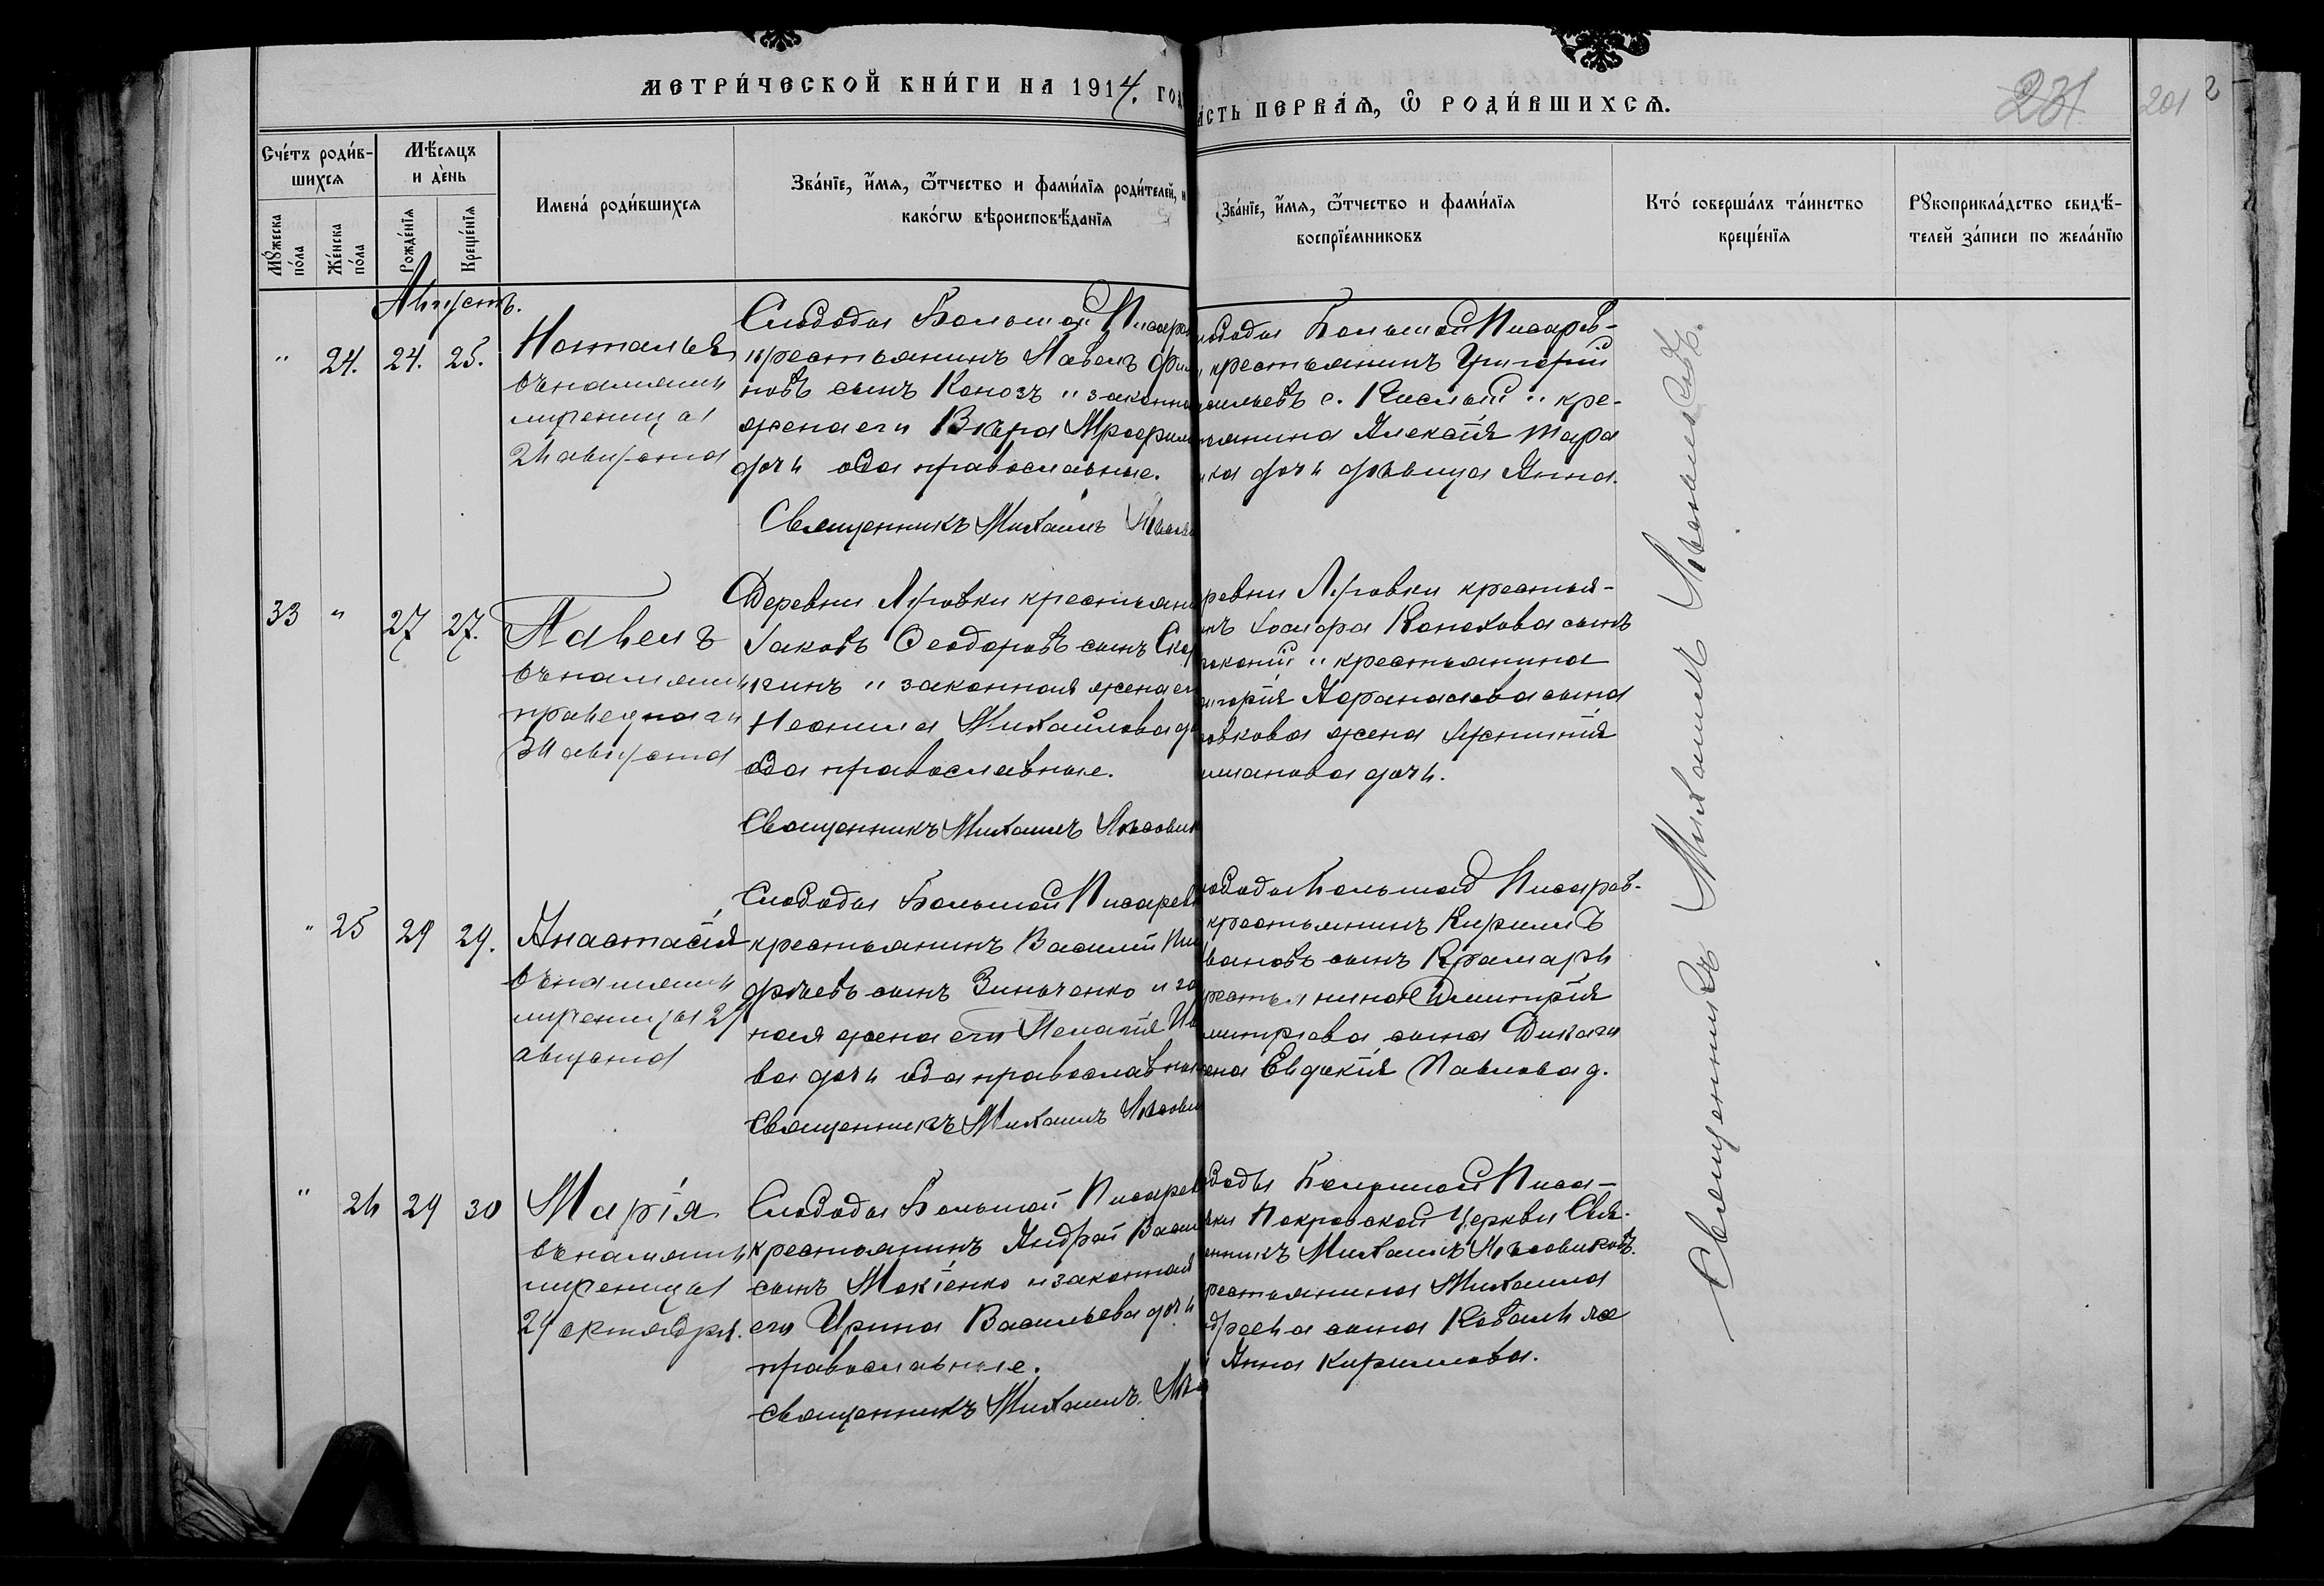 МЕТРИ́ЧЕСКОЙ КНИ́ГИ НА 1914. ГОД
А́СТЬ ПЕРВА́Ѧ, Ѽ РОДИ́ВШИХСѦ.
231
201
2
Сче́тъ роди́в-
шихсѧ
Мꙋ́жеска по́ла
Же́нска по́ла
Мѣ́сѧцъ
и де́нь
Рожде́нїѧ
Креще́нїѧ
Имена́ роди́вшихсѧ
Зва́нїе, и́мѧ, ѻ҆́тчество и фами́лїѧ роди́телей, и
како́гѡ вѣроисповѣ́данїѧ
Зва́нїе, и́мѧ, ѻ҆́тчество и фами́лїѧ
воспрїе́мниковъ
Кто́ соверша́лъ та́инство
креще́нїѧ
Рꙋкоприкла́дство свидѣ́-
телей за́писи по жела́нїю
Августъ.
" 24. 24. 25.
Наталья
въ память
мученицы
24 августа
Слободы Большой Писарев
крестьянинъ Павелъ
новъ сынъ Коноз ъ и законна
жена его Вѣра
дочь оба православные.
Священникъ Михаилъ
слободы Большой Писарев-
крестьянинъ Григорій
сильевъ с. Кислый и кре-
стьянина Алексія
дочь дѣвица Анна.
33 " 27 27.
Павелъ
въ память
праведнаго
августа
Деревни крестьяни
Іаковъ Ѳеодоровъ сынъ
кинъ и законная жена его
Неонила Михайлова до
оба православные.
Священникъ Михаилъ Лѣсовик
ревни крестья-
Конохова сынъ
и крестьянина
горія Аѳанасьева сына
жена
дочь.
" 25 29 29.
Анастасія
въ память
мученицы 29
августа
Слободы Большой Писарев
крестьянинъ Василій
дрѣевъ сынъ Зинченко и за
ная жена его Пелагія
ва дочь оба православные
Священникъ Михаилъ Лѣсовик
слободы Большой Писарев-
крестьянинъ Кириллъ
вановъ сынъ Крамарь
рестьянина Димитрія
митріева сына
жена Евдокія Павлова д.
" 26 29 30
Марія
въ память
мученицы
29 октября.
Слободы Большой Писарев
крестьянинъ Андрей Васил
сынъ Мокіенко и законная
его Ирина Васильева дочь
православные.
Священникъ Михаилъ
ободы Большой Писа-
вки Покровской Церкви Свя-
щенникъ Михаилъ Лѣсовиковъ.
рестьянина Михаила
дреева сына Коваля
Анна Кириллова.
Священникъ Михаилъ Лѣсовиковъ.